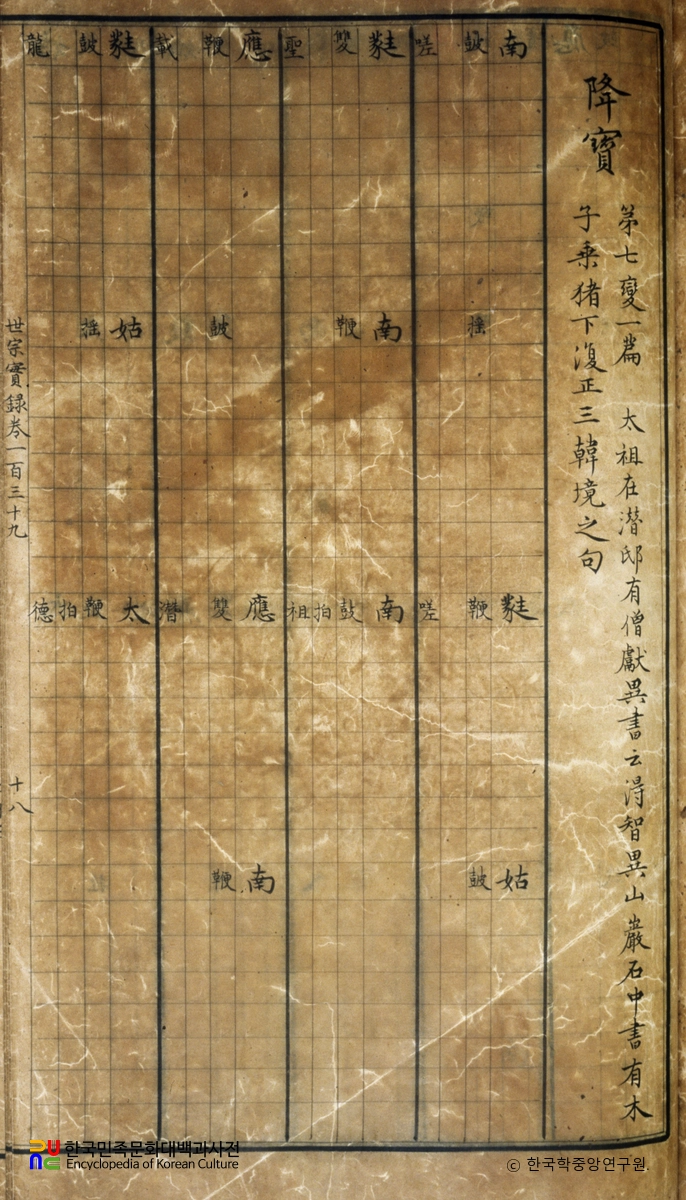 降寶
第七變一篇 太祖在潛邸有僧獻異書云淂智異山巖石中書有木
子乘猪下復正三韓境之句
南 㽔 姑
鼓 搖 鞭 鼓
嗟 嗟
㽔 南 南
雙 鞭 鼓
拍
聖 祖
應 應 南
鞭 鼓 雙 鞭
載 潛
㽔 姑 太
鼓 搖 鞭
拍
龍 德
世宗實錄卷一百三十九
十八
한국민족문화대백과사전
Encyclopedia of Korean Culture
© 한국학중앙연구원